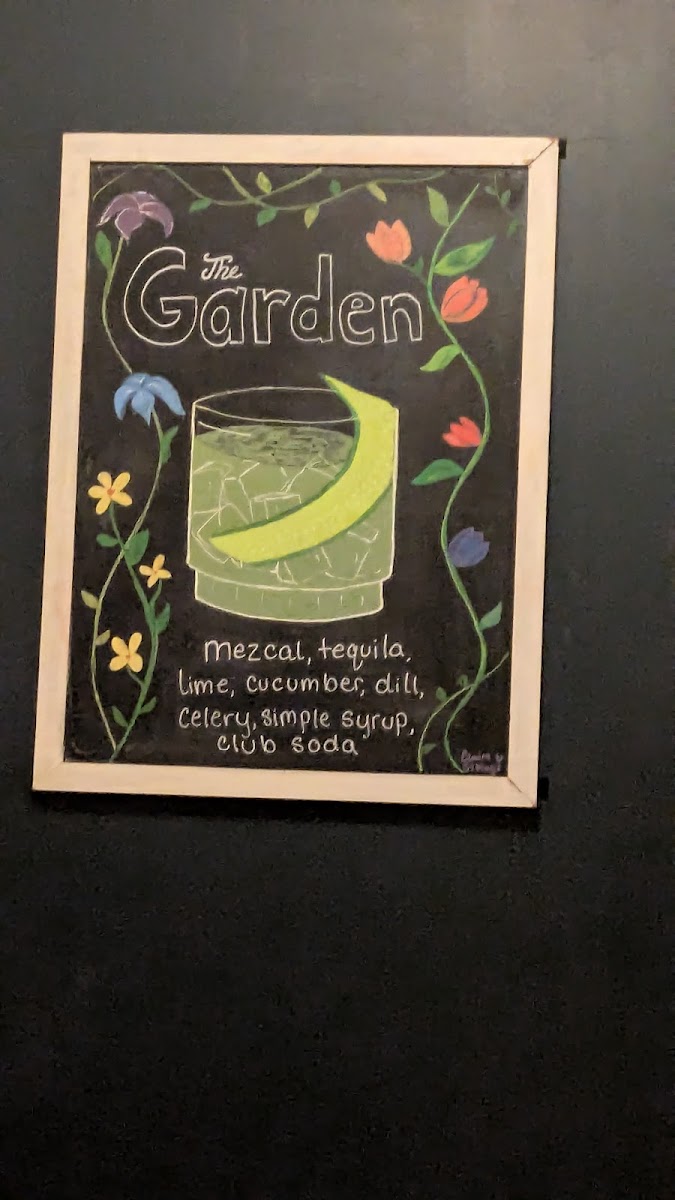 The
Garden
mezcal, tequila,
lime, cucumber, dill,
celery, simple syrup,
club soda